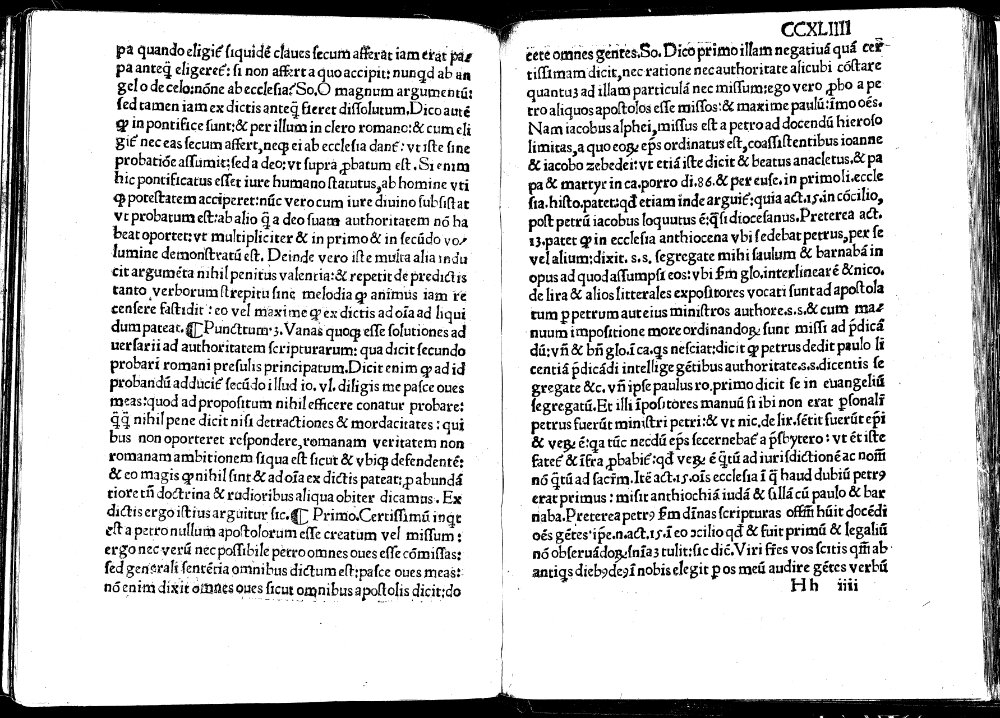 pa quando eligiť siquidẽ claues secum afferat iam erat pa⸗
pa anteq̃ eligeret̃: si non affert a quo accipit: nunqd ab an
gelo de celo: nõne ab ecclesia? So. O magnum argumentũ:
sed tamen iam ex dictis anteq̃ fieret dissolutum. Dico autẽ
ꝙ in pontifice sunt: & per illum in clero romano: & cum eli
git̃ nec eas secum affert, neqȝ ei ab ecclesia dant̃: vt iste sine
probatiõe assumit: sed a deo: vt supra ꝓbatum est. Si enim
hic pontificatus esset iure humano statutus, ab homine vti
ꝙ potestatem acciperet: nũc vero cum iure diuino subsistat
vt probatum est: ab alio q̃ a deo suam authoritatem nõ ha
beat oportet: vt multipliciter & in primo & in secũdo vo⸗
lumine demonstratũ est. Deinde vero iste multa alia indu
cit argumẽta nihil penitus valentia: & repetit de predictis
tanto verborum strepitu sine melodia ꝙ animus iam re
censere fastidit: eo vel maxime ꝙ ex dictis ad oĩa ad liqui
dum pateat. ¶ Punctum .3. Vanas quoqȝ esse solutiones ad
uersarii ad authoritatem scripturarum: qua dicit secundo
probari romani presulis principatum. Dicit enim ꝙ ad id
probandũ adducit̃ secũdo illud io. vl. diligis me pasce oues
meas: quod ad propositum nihil efficere conatur probare:
q̃q̃ nihil pene dicit nisi detractiones & mordacitates: qui
bus non oporteret respondere, romanam veritatem non
romanam ambitionem siqua est sicut & vbiqȝ defendentẽ:
& eo magis ꝙ nihil sint & ad oĩa ex dictis pateat: ꝓ abundã
tiore tñ doctrina & rudioribus aliqua obiter dicamus. Ex
dictis ergo istius arguitur sic. ¶ Primo. Certissimũ inqt
est a petro nullum apostolorum esse creatum vel missum:
ergo nec verũ nec possibile petro omnes oues esse cõmissas:
sed generali sentẽtia omnibus dictum est: pasce oues meas:
nõ enim dixit omnes oues sicut omnibus apostolis dicit: do
CCXLIIII
cete omnes gentes. So. Dico primo illam negatiuã quã cer⸗
tissimam dicit, nec ratione nec authoritate alicubi cõstare
quantuȝ ad illam particulã nec missum: ego vero ꝓbo a pe
tro aliquos apostolos esse missos: & maxime paulũ: ĩmo oẽs.
Nam iacobus alphei, missus est a petro ad docendũ hieroso
limitas, a quo eoꝝ ep̃s ordinatus est, coassistentibus ioanne
& iacobo zebedei: vt etiã iste dicit & beatus anacletus, & pa
pa & martyr in ca. porro di. 86. & per euse. in primo li. eccle
sia. histo. patet: qđ etiam inde arguit̃: quia act. 15. in cõcilio,
post petrũ iacobus loquutus ẽ: q̃si diocesanus. Preterea act.
13. patet ꝙ in ecclesia anthiocena vbi sedebat petrus, per se
vel alium: dixit. s.s. segregate mihi saulum & barnabã in
opus ad quod assumpsi eos: vbi s̃m glo. interlinearẽ & nico.
de lira & alios litterales expositores vocati sunt ad apostola
tum ꝑ petrum aut eius ministros authore. s.s. & cum ma⸗
nuum impositione more ordinandoꝝ sunt missi ad p̃dicã
dũ: vñ & bñ glo. ĩ ca. qs nesciat: dicit ꝙ petrus dedit paulo li
centiã p̃dicãdi intellige gẽtibus authoritate. s.s. dicentis se
gregate &c. vñ ipse paulus ro. primo dicit se in euangeliũ
segregatũ. Et illi ĩpositores manuũ si ibi non erat ꝑsonalr̃
petrus fuerũt ministri petri: & vt nic. de lir. sẽtit fuerũt ep̃i
& veꝝ ẽ: qa tũc necdũ ep̃s secernebat̃ a p̃sbytero: vt et iste
fatet̃ & ĩfra ꝓbabit̃: qđ veꝝ ẽ q̃tũ ad iurisdictionẽ ac nom̃
nõ q̃tũ ad sacr̃m. Itẽ act. 15. oĩs ecclesia ĩ q̃ haud dubiũ petrꝰ
erat primus: misit anthiochiã iudã & sillã cũ paulo & bar
naba. Preterea petrꝰ s̃m dĩnas scripturas offm̃ hũit docẽdi
oẽs gẽtes. ip̃e. n. act. 15. ĩ eo ↄcilio qđ & fuit primũ & legaliũ
nõ obseruãdoꝝ sñĩaȝ tulit: sic diẽ. Viri fr̃es vos scitis qm̃ ab
antiqs diebꝰ deꝰ ĩ nobis elegit ꝑ os meũ audire gẽtes verbũ
H h iiii